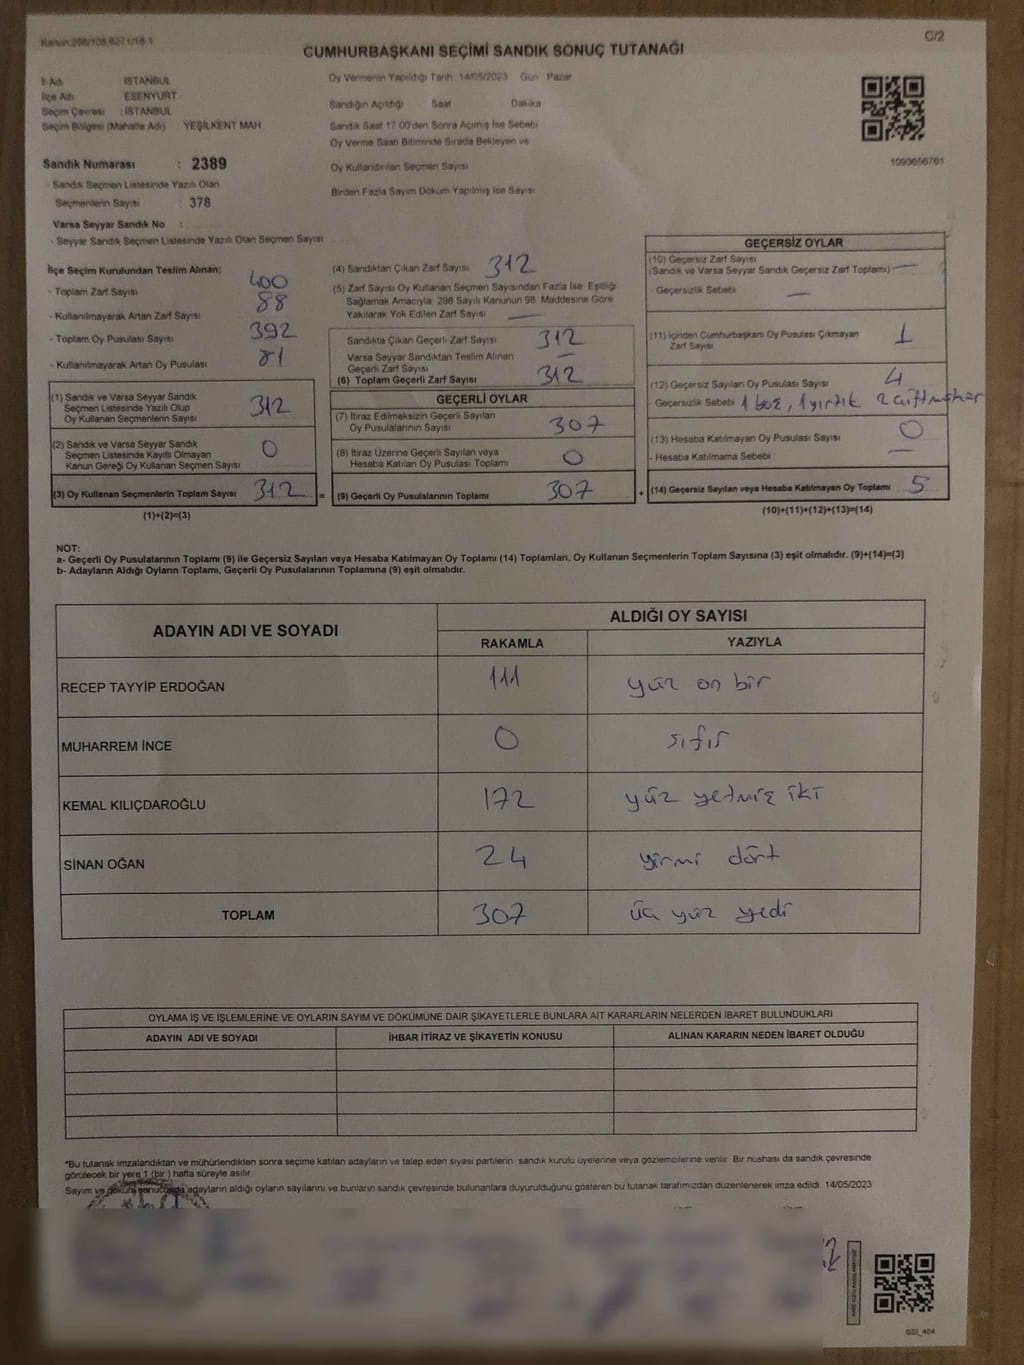 C/2
CUMHURBAŞKANI SEÇİMİ SANDIK SONUÇ TUTANAĞI
İl Adı İSTANBUL
İlçe Adı ESENYURT
Seçim Çevresi : İSTANBUL
Seçim Bölgesi (Mahalle Adı) YEŞİLKENT MAH
Sandık Numarası : 2389
- Sandık Seçmen Listesinde Yazılı Olan
Seçmenlerin Sayısı : 378
Varsa Seyyar Sandık No :
- Seyyar Sandık Seçmen Listesinde Yazılı Olan Seçmen Sayısı
Oy Vermenin Yapıldığı Tarih 14/05/2023 Gün Pazar
Sandığın Açıldığı Saat Dakika
Sandık Saat 17:00'den Sonra Açılmış İse Sebebi
Oy Verme Saati Bitiminde Sırada Bekleyen ve
Oy Kullandırılan Seçmen Sayısı
Birden Fazla Sayım Döküm Yapılmış İse Sayısı
1093656761
İlçe Seçim Kurulundan Teslim Alınan;
- Toplam Zarf Sayısı 400
- Kullanılmayarak Artan Zarf Sayısı 88
- Toplam Oy Pusulası Sayısı 392
- Kullanılmayarak Artan Oy Pusulası 81
(1) Sandık ve Varsa Seyyar Sandık
Seçmen Listesinde Yazılı Olup
Oy Kullanan Seçmenlerin Sayısı 312
(2) Sandık ve Varsa Seyyar Sandık
Seçmen Listesinde Kayıtlı Olmayan
Kanun Gereği Oy Kullanan Seçmen Sayısı 0
(3) Oy Kullanan Seçmenlerin Toplam Sayısı 312 =
(1)+(2)=(3)
(4) Sandıktan Çıkan Zarf Sayısı 312
(5) Zarf Sayısı Oy Kullanan Seçmen Sayısından Fazla İse, Eşitliği
Sağlamak Amacıyla 298 Sayılı Kanunun 98. Maddesine Göre
Yakılarak Yok Edilen Zarf Sayısı —
Sandıkta Çıkan Geçerli Zarf Sayısı 312
Varsa Seyyar Sandıktan Teslim Alınan
Geçerli Zarf Sayısı —
(6) Toplam Geçerli Zarf Sayısı 312
GEÇERLİ OYLAR
(7) İtiraz Edilmeksizin Geçerli Sayılan
Oy Pusulalarının Sayısı 307
(8) İtiraz Üzerine Geçerli Sayılan veya
Hesaba Katılan Oy Pusulası Toplamı 0
(9) Geçerli Oy Pusulalarının Toplamı 307 +
GEÇERSİZ OYLAR
(10) Geçersiz Zarf Sayısı
(Sandık ve Varsa Seyyar Sandık Geçersiz Zarf Toplamı) —
- Geçersizlik Sebebi —
(11) İçinden Cumhurbaşkanı Oy Pusulası Çıkmayan
Zarf Sayısı 1
(12) Geçersiz Sayılan Oy Pusulası Sayısı 4
- Geçersizlik Sebebi 1 boş, 1 yırtık 2 çift mühür
(13) Hesaba Katılmayan Oy Pusulası Sayısı 0
- Hesaba Katılmama Sebebi —
(14) Geçersiz Sayılan veya Hesaba Katılmayan Oy Toplamı 5
(10)+(11)+(12)+(13)=(14)
NOT:
a- Geçerli Oy Pusulalarının Toplamı (9) ile Geçersiz Sayılan veya Hesaba Katılmayan Oy Toplamı (14) Toplamları, Oy Kullanan Seçmenlerin Toplam Sayısına (3) eşit olmalıdır. (9)+(14)=(3)
b- Adayların Aldığı Oyların Toplamı, Geçerli Oy Pusulalarının Toplamına (9) eşit olmalıdır.
ADAYIN ADI VE SOYADI ALDIĞI OY SAYISI
RAKAMLA YAZIYLA
RECEP TAYYİP ERDOĞAN 111 yüz on bir
MUHARREM İNCE 0 sıfır
KEMAL KILIÇDAROĞLU 172 yüz yetmiş iki
SİNAN OĞAN 24 yirmi dört
TOPLAM 307 üç yüz yedi
OYLAMA İŞ VE İŞLEMLERİNE VE OYLARIN SAYIM VE DÖKÜMÜNE DAİR ŞİKAYETLERLE BUNLARA AİT KARARLARIN NELERDEN İBARET BULUNDUKLARI
ADAYIN ADI VE SOYADI İHBAR İTİRAZ VE ŞİKAYETİN KONUSU ALINAN KARARIN NEDEN İBARET OLDUĞU
*Bu tutanak imzalandıktan ve mühürlendikten sonra seçime katılan adayların ve talep eden siyasi partilerin sandık kurulu üyelerine veya gözlemcilerine verilir. Bir nüshası da sandık çevresinde
görülecek bir yere 1 (bir) hafta süreyle asılır.
Sayım ve döküm sonucunda adayların aldığı oyların sayılarını ve bunların sandık çevresinde bulunanlara duyurulduğunu gösteren bu tutanak tarafımızdan düzenlenerek imza edildi. 14/05/2023